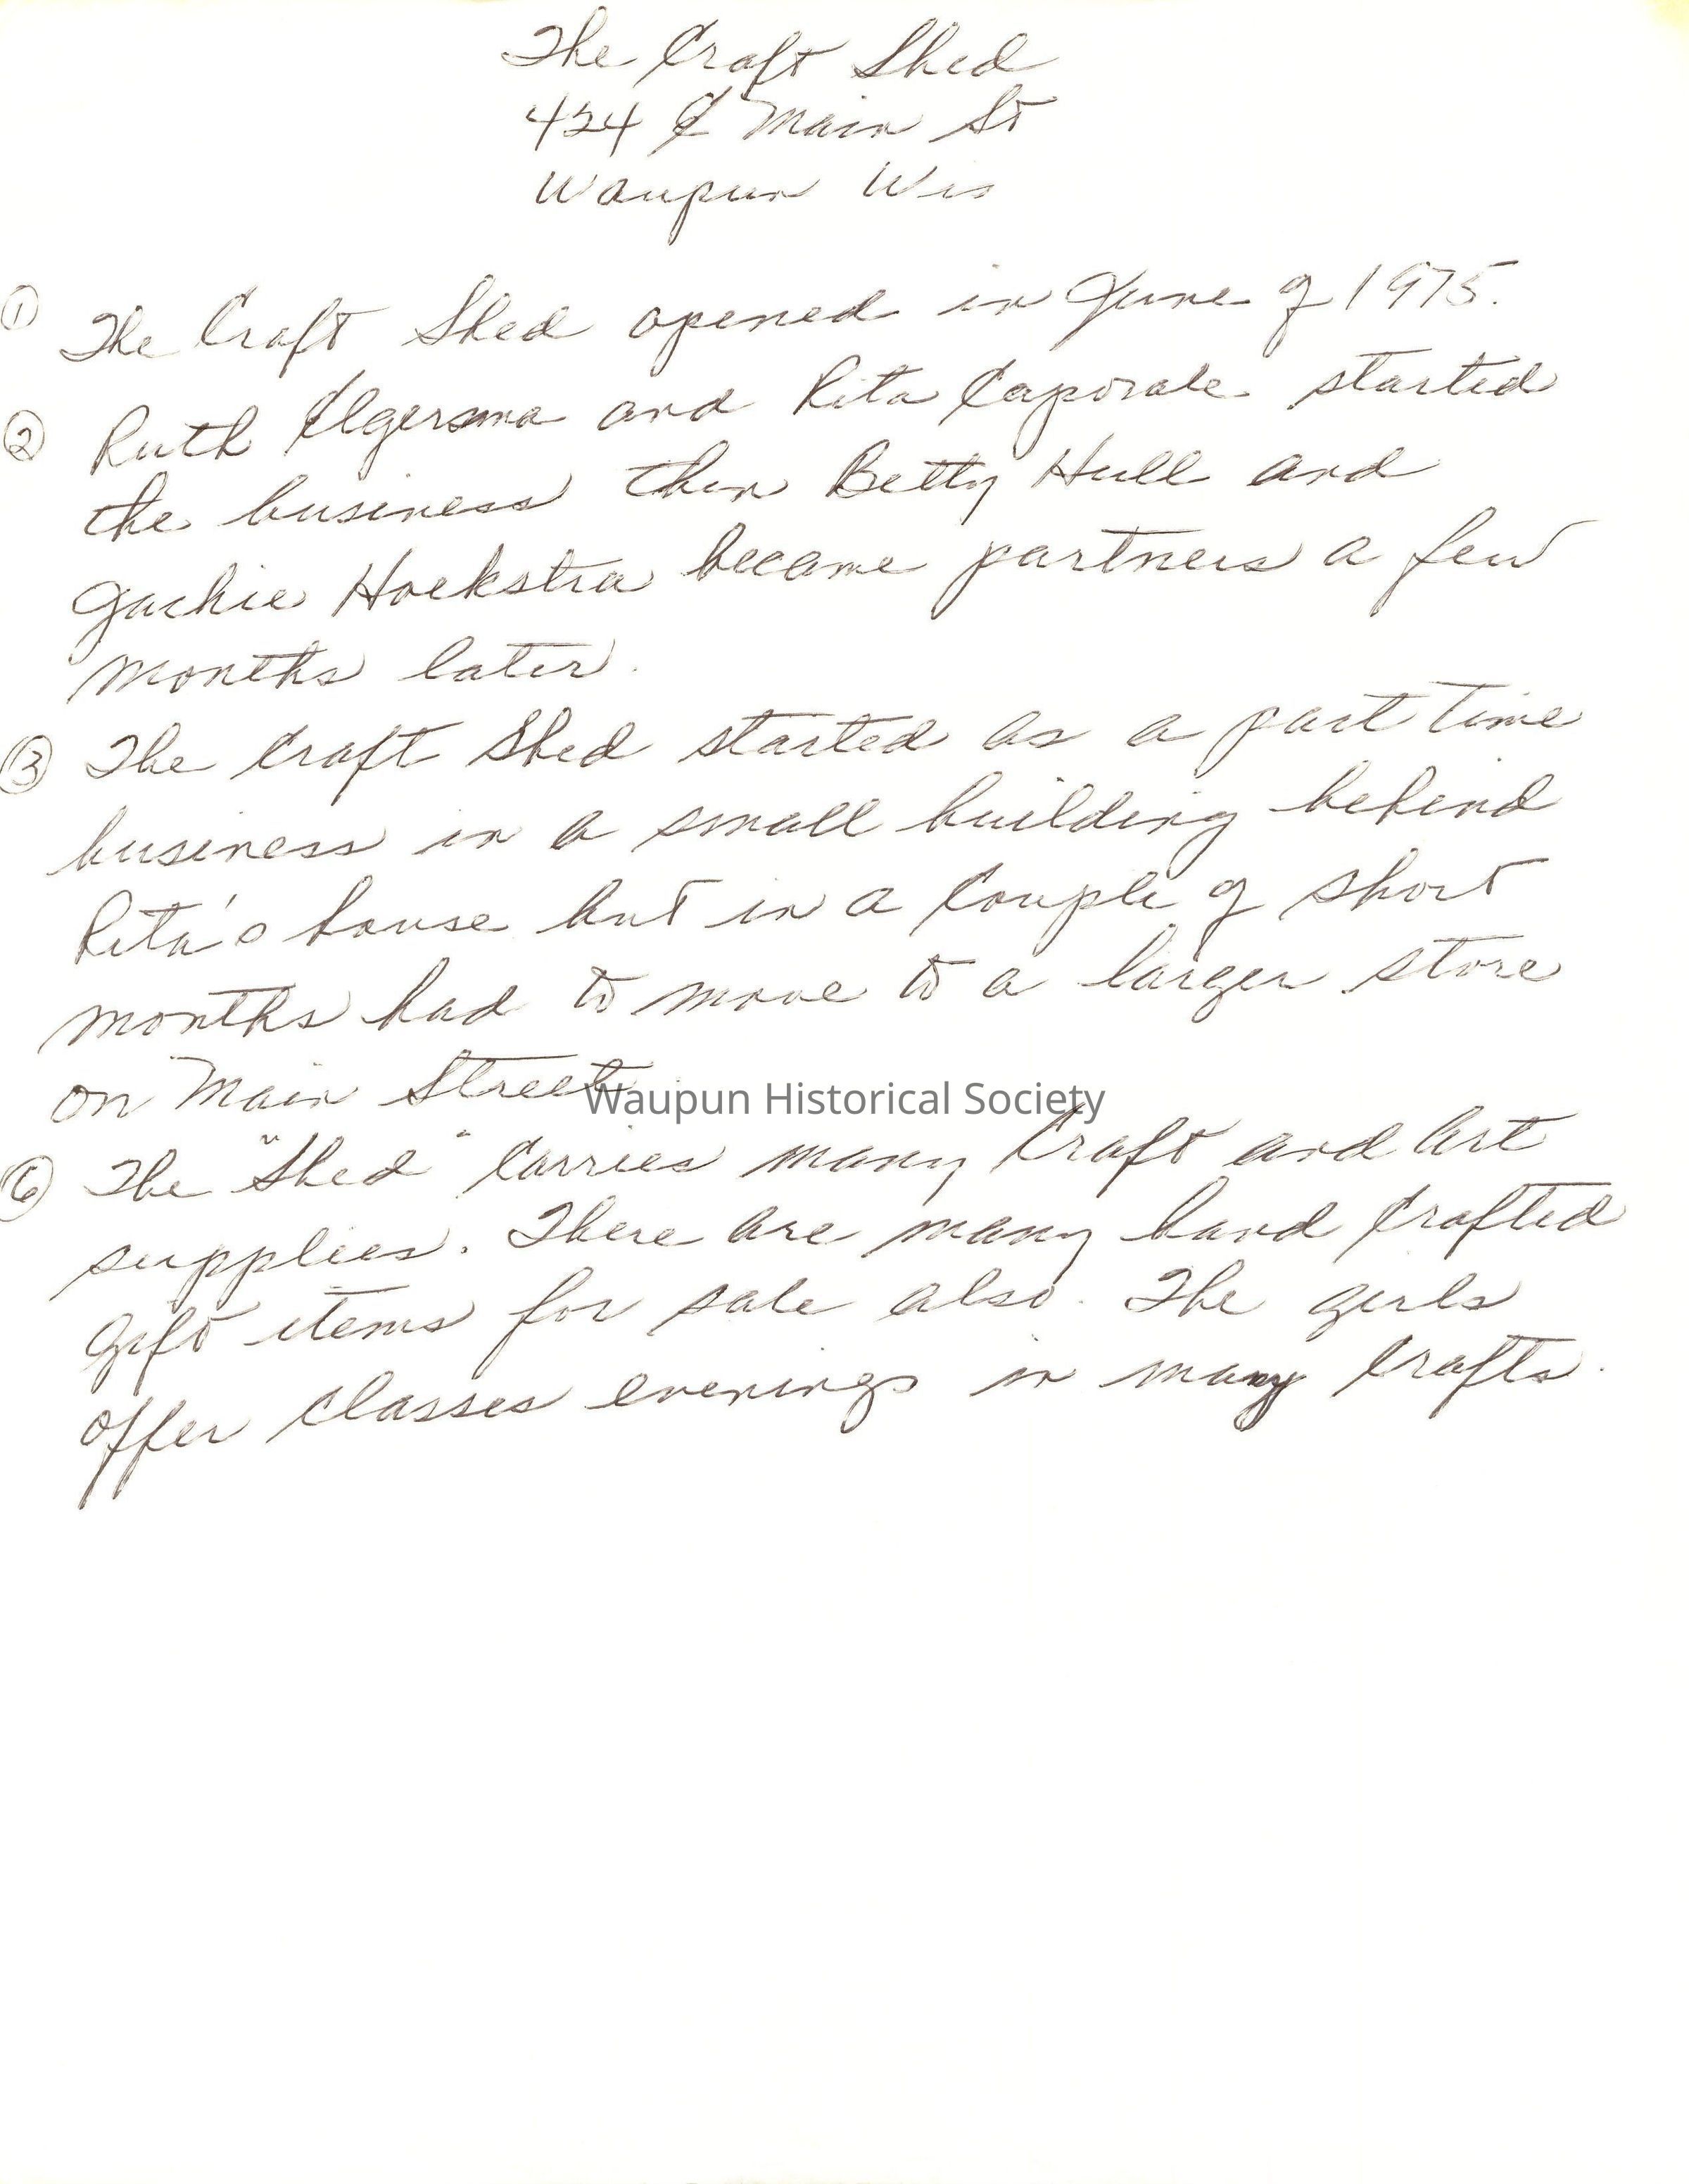 The Craft Shed
424 E Main St
Waupun Wis
① The Craft Shed opened in June of 1975.
② Ruth Elgersma and Rita Caporale started
the business then Betty Hull and
Jackie Hoekstra became partners a few
months later.
③ The Craft Shed started as a part time
business in a small building behind
Rita's house but in a couple of short
months had to move to a larger store
on Main Street.
Waupun Historical Society
⑥ The "Shed" carries many craft and art
supplies. There are many hand crafted
gift items for sale also. The girls
offer classes evenings in many crafts.